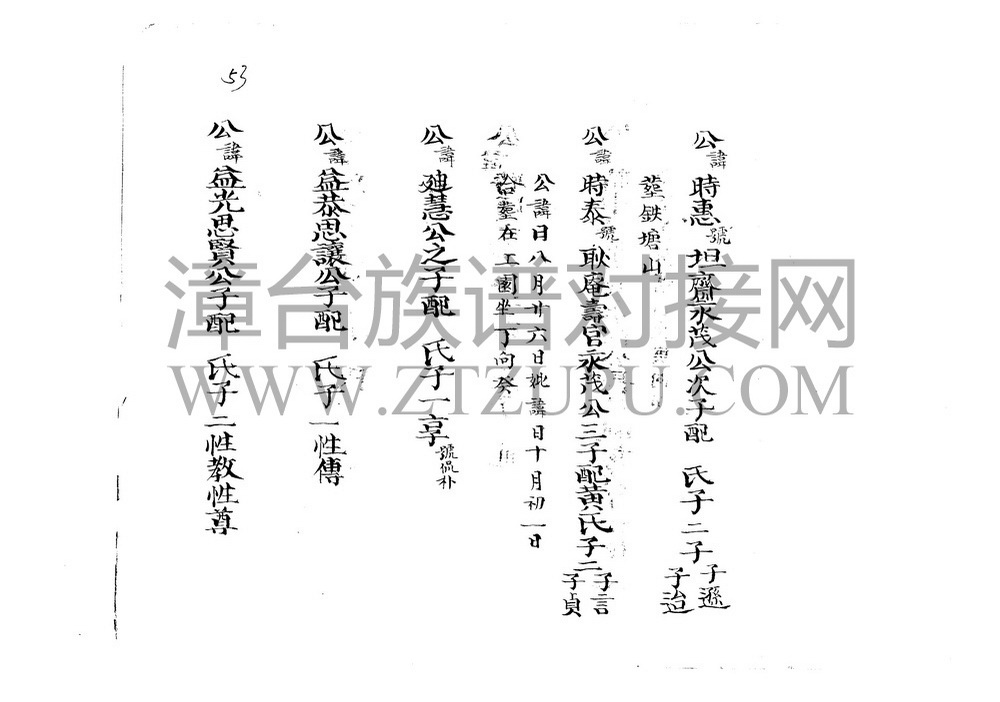 53
公諱時惠號坦齋永茂公次子配 氏子二子 子遜 子迨
塟鉄塘山
公諱時泰號耿庵壽官永茂公三子配黃氏子二 子言 子貞
公諱日八月廿六日妣諱日十月初一日
塟在工園坐丁向癸
公諱廸慧公之子配 氏子一享號侃朴
公諱益恭思讓公子配 氏子一性傳
公諱益光思賢公子配 氏子二性教性尊
漳台族谱对接网
WWW.ZTZUPU.COM